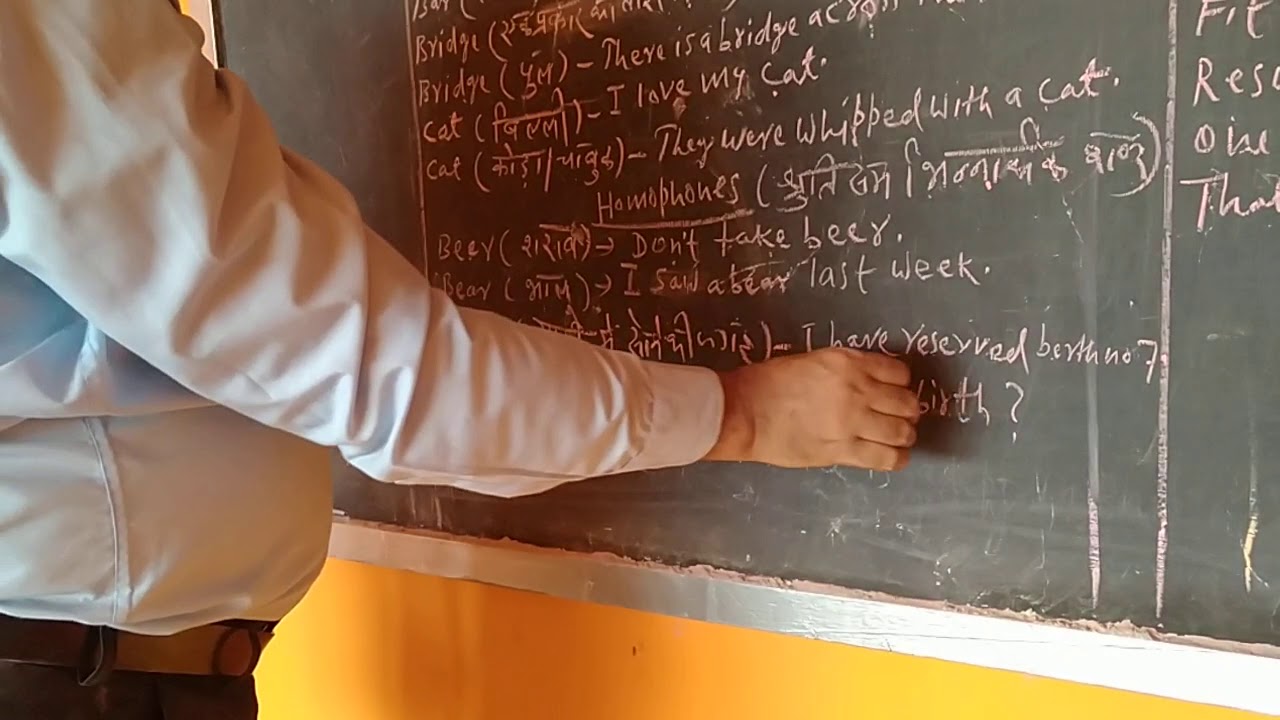 Bar (
Bridge (
Bridge (पुल) - There is a bridge across
Cat (बिल्ली) - I love my cat.
Cat (कोड़ा/चाबुक) - They were whipped with a cat.
Homophones (श्रुतिसम भिन्नार्थक शब्द)
Beer (शराब) → Don't take beer.
Bear (भालू) → I saw a bear last week.
I have reserved berth no 7.
birth ?
Fit
Rese
One
That